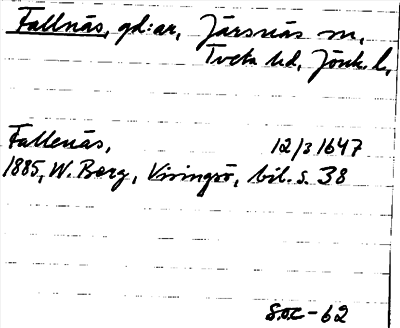 Fallnäs, gd:ar, Järsnäs sn,
Tveta hd, Jönk. l,
Fallenäs, 12/3 1647
1885, W. Berg, Visingsö, bil. s. 38
SOC-62